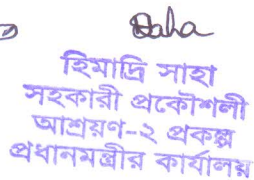 Saha
হিমাদ্রি সাহা
সহকারী প্রকৌশলী
আশ্রয়ণ-২ প্রকল্প
প্রধানমন্ত্রীর কার্যালয়